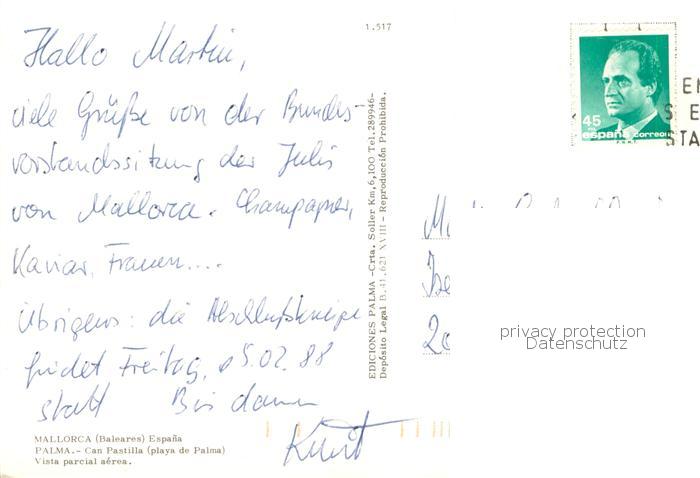 1.517
Hallo Martin,
viele Grüße von der Bundes-
vorstandssitzung der Julis
von Mallorca. Champagner,
Kaviar, Frauen....
Übrigens: die Abschlußkneipe
findet Freitag, 05.02.88
statt Bis dann
Kurt
MALLORCA (Baleares) España
PALMA.- Can Pastilla (playa de Palma)
Vista parcial aérea.
EDICIONES PALMA -Crta. Soller Km,6,100 Tel.289946-
Depósito Legal B.41.621 XVIII - Reproducción Prohibida.
45
españa correos
F.N.M.T.
EN
S E
STA
privacy protection
Datenschutz